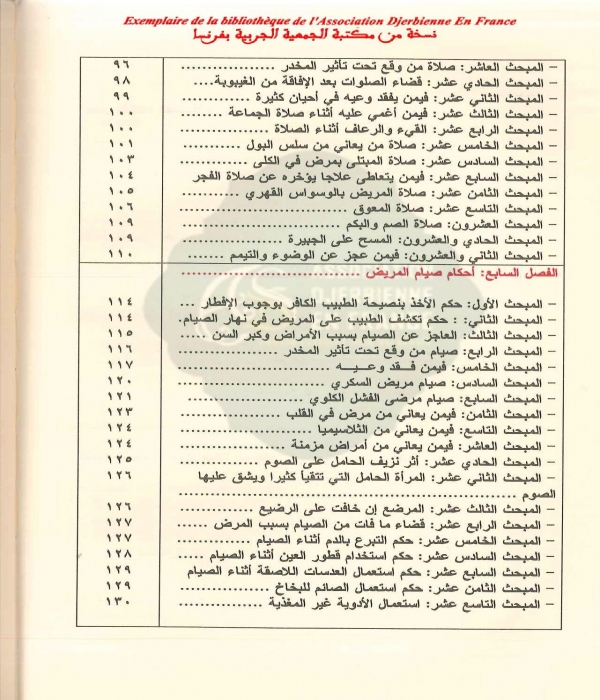 Exemplaire de la bibliothèque de l'Association Djerbienne En France
نسخة من مكتبة الجمعية الجربية بفرنسا
– المبحث العاشر: صلاة من وقع تحت تأثير المخدر .................. ٩٦
– المبحث الحادي عشر: قضاء الصلوات بعد الإفاقة من الغيبوبة.... ٩٨
– المبحث الثاني عشر: فيمن يفقد وعيه في أحيان كثيرة ............. ٩٩
– المبحث الثالث عشر: فيمن أغمي عليه أثناء صلاة الجماعة ........ ١٠٠
– المبحث الرابع عشر: القيء والرعاف أثناء الصلاة ................. ١٠٠
– المبحث الخامس عشر: صلاة من يعاني من سلس البول ........... ١٠١
– المبحث السادس عشر: صلاة المبتلى بمرض في الكلى ............ ١٠٣
– المبحث السابع عشر: فيمن يتعاطى علاجا يؤخره عن صلاة الفجر ١٠٤
– المبحث الثامن عشر: صلاة المريض بالوسواس القهري ............ ١٠٥
– المبحث التاسع عشر: صلاة المعوق ............................... ١٠٦
– المبحث العشرون: صلاة الصم والبكم ............................ ١٠٩
– المبحث الحادي والعشرون: المسح على الجبيرة .................. ١٠٩
– المبحث الثاني والعشرون: فيمن عجز عن الوضوء والتيمم ....... ١١٠
الفصل السابع: أحكام صيام المريض .................................
– المبحث الأول: حكم الأخذ بنصيحة الطبيب الكافر بوجوب الإفطار ... ١١٤
– المبحث الثاني: : حكم تكشف الطبيب على المريض في نهار الصيام. ١١٤
– المبحث الثالث: العاجز عن الصيام بسبب الأمراض وكبر السن ...... ١١٥
– المبحث الرابع: صيام من وقع تحت تأثير المخدر ................. ١١٦
– المبحث الخامس: فيمن فقد وعيه ............................... ١١٧
– المبحث السادس: صيام مريض السكري ......................... ١٢٠
– المبحث السابع: صيام مرضى الفشل الكلوي ..................... ١٢١
– المبحث الثامن: فيمن يعاني من مرض في القلب ................. ١٢٣
– المبحث التاسع: فيمن يعاني من الثلاسيميا ..................... ١٢٤
– المبحث العاشر: فيمن يعاني من أمراض مزمنة ................... ١٢٤
– المبحث الحادي عشر: أثر نزيف الحامل على الصوم .............. ١٢٥
– المبحث الثاني عشر: المرأة الحامل التي تتقيأ كثيرا ويشق عليها ١٢٦
الصوم .............................................
– المبحث الثالث عشر: المرضع إن خافت على الرضيع .............. ١٢٦
– المبحث الرابع عشر: قضاء ما فات من الصيام بسبب المرض ....... ١٢٧
– المبحث الخامس عشر: حكم التبرع بالدم أثناء الصيام ............. ١٢٧
– المبحث السادس عشر: حكم استخدام قطور العين أثناء الصيام ..... ١٢٨
– المبحث السابع عشر: حكم استعمال العدسات اللاصقة أثناء الصيام ١٢٩
– المبحث الثامن عشر: حكم استعمال الصائم للبخاخ ................ ١٢٩
– المبحث التاسع عشر: استعمال الأدوية غير المغذية ................ ١٣٠